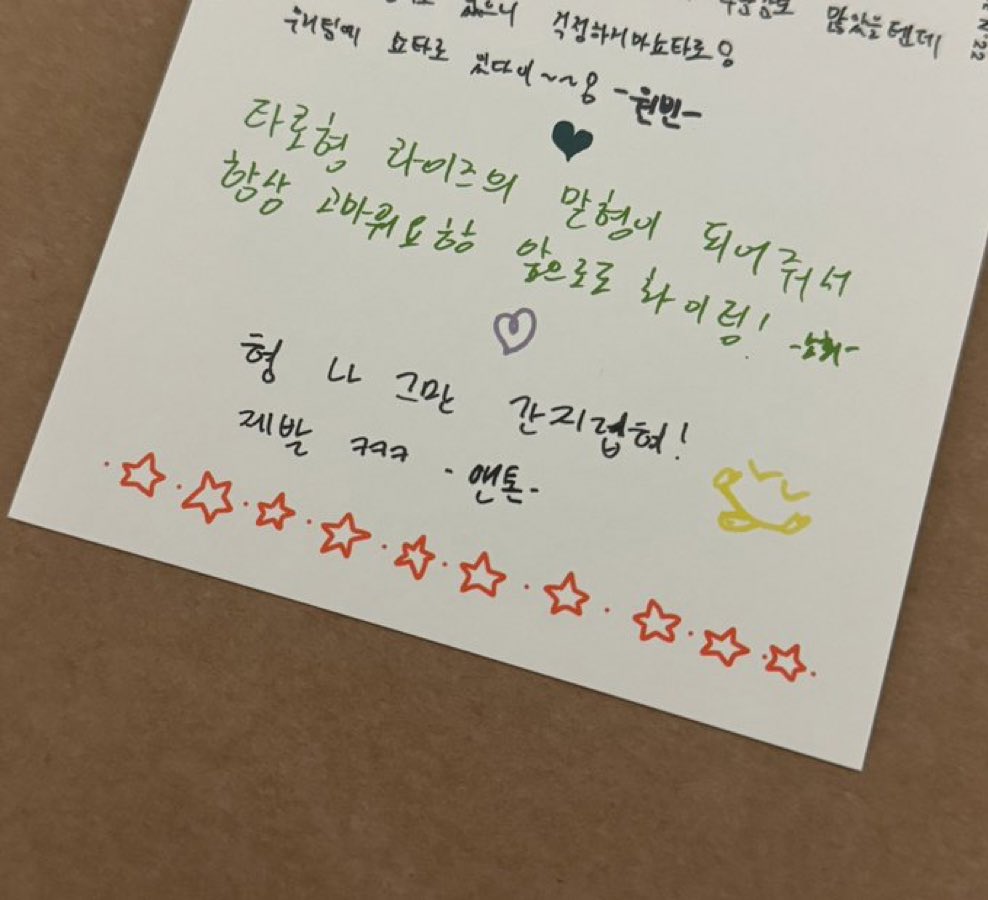 있으니 걱정하지마쇼타로응 많았을텐데
쇼타로 있다이~~용 -원빈-
타로형 라이즈의 맏형이 되어줘서
항상 고마워요항 앞으로도 화이팅!
형 나 그만 간지럽혀!
제발 ㅋㅋㅋ -앤톤-